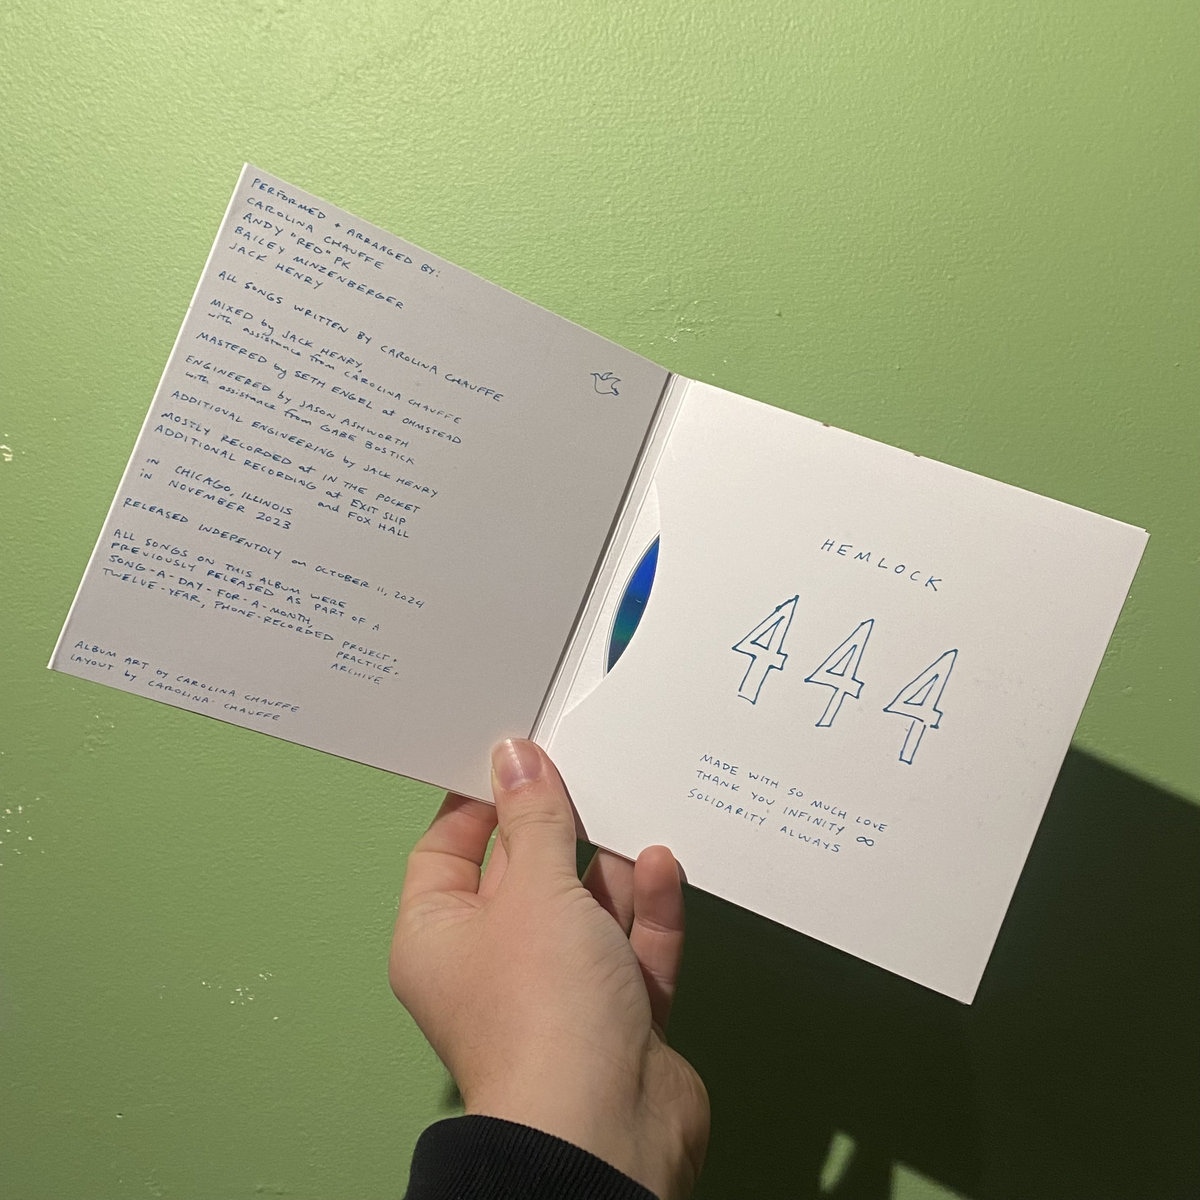 PERFORMED + ARRANGED BY:
CAROLINA CHAUFFE
ANDY "RED" PK
BAILEY MINZENBERGER
JACK HENRY
ALL SONGS WRITTEN BY CAROLINA CHAUFFE
MIXED by JACK HENRY,
with assistance from CAROLINA CHAUFFE
MASTERED by SETH ENGEL at OHMSTEAD
ENGINEERED by JASON ASHWORTH
with assistance from GABE BOSTICK
ADDITIONAL ENGINEERING by JACK HENRY
MOSTLY RECORDED at IN THE POCKET
ADDITIONAL RECORDING at EXIT SLIP
and FOX HALL
IN CHICAGO, ILLINOIS
in NOVEMBER 2023
RELEASED INDEPENTDLY on OCTOBER 11, 2024
ALL SONGS ON THIS ALBUM WERE
PREVIOUSLY RELEASED AS PART OF A
SONG-A-DAY-FOR-A-MONTH,
TWELVE-YEAR, PHONE-RECORDED PROJECT.
PRACTICE.
ARCHIVE
ALBUM ART by CAROLINA CHAUFFE
LAYOUT by CAROLINA CHAUFFE
HEMLOCK
444
MADE WITH SO MUCH LOVE
THANK YOU INFINITY ∞
SOLIDARITY ALWAYS